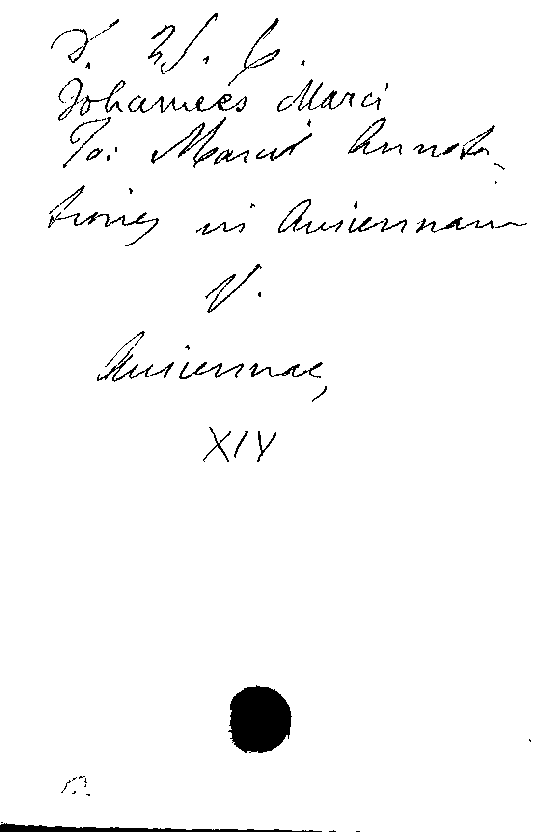 Johannes Marci
Jo: Marci Annota-
tiones in Avicennam
V.
Avicennae,
XIV